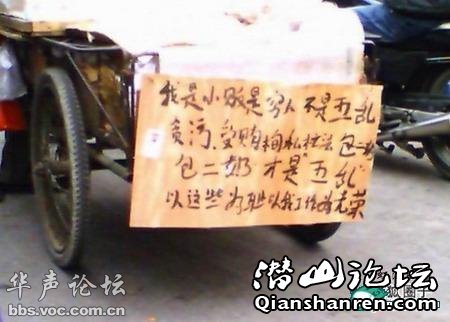 我是小贩是穷人 不是五乱
贪污、受购徇私枉法 包
包二奶 才是"五乱"
以这些为耻以我工作为光荣
华声论坛
bbs.voc.com.cn
潜山论坛
Qianshanren.com